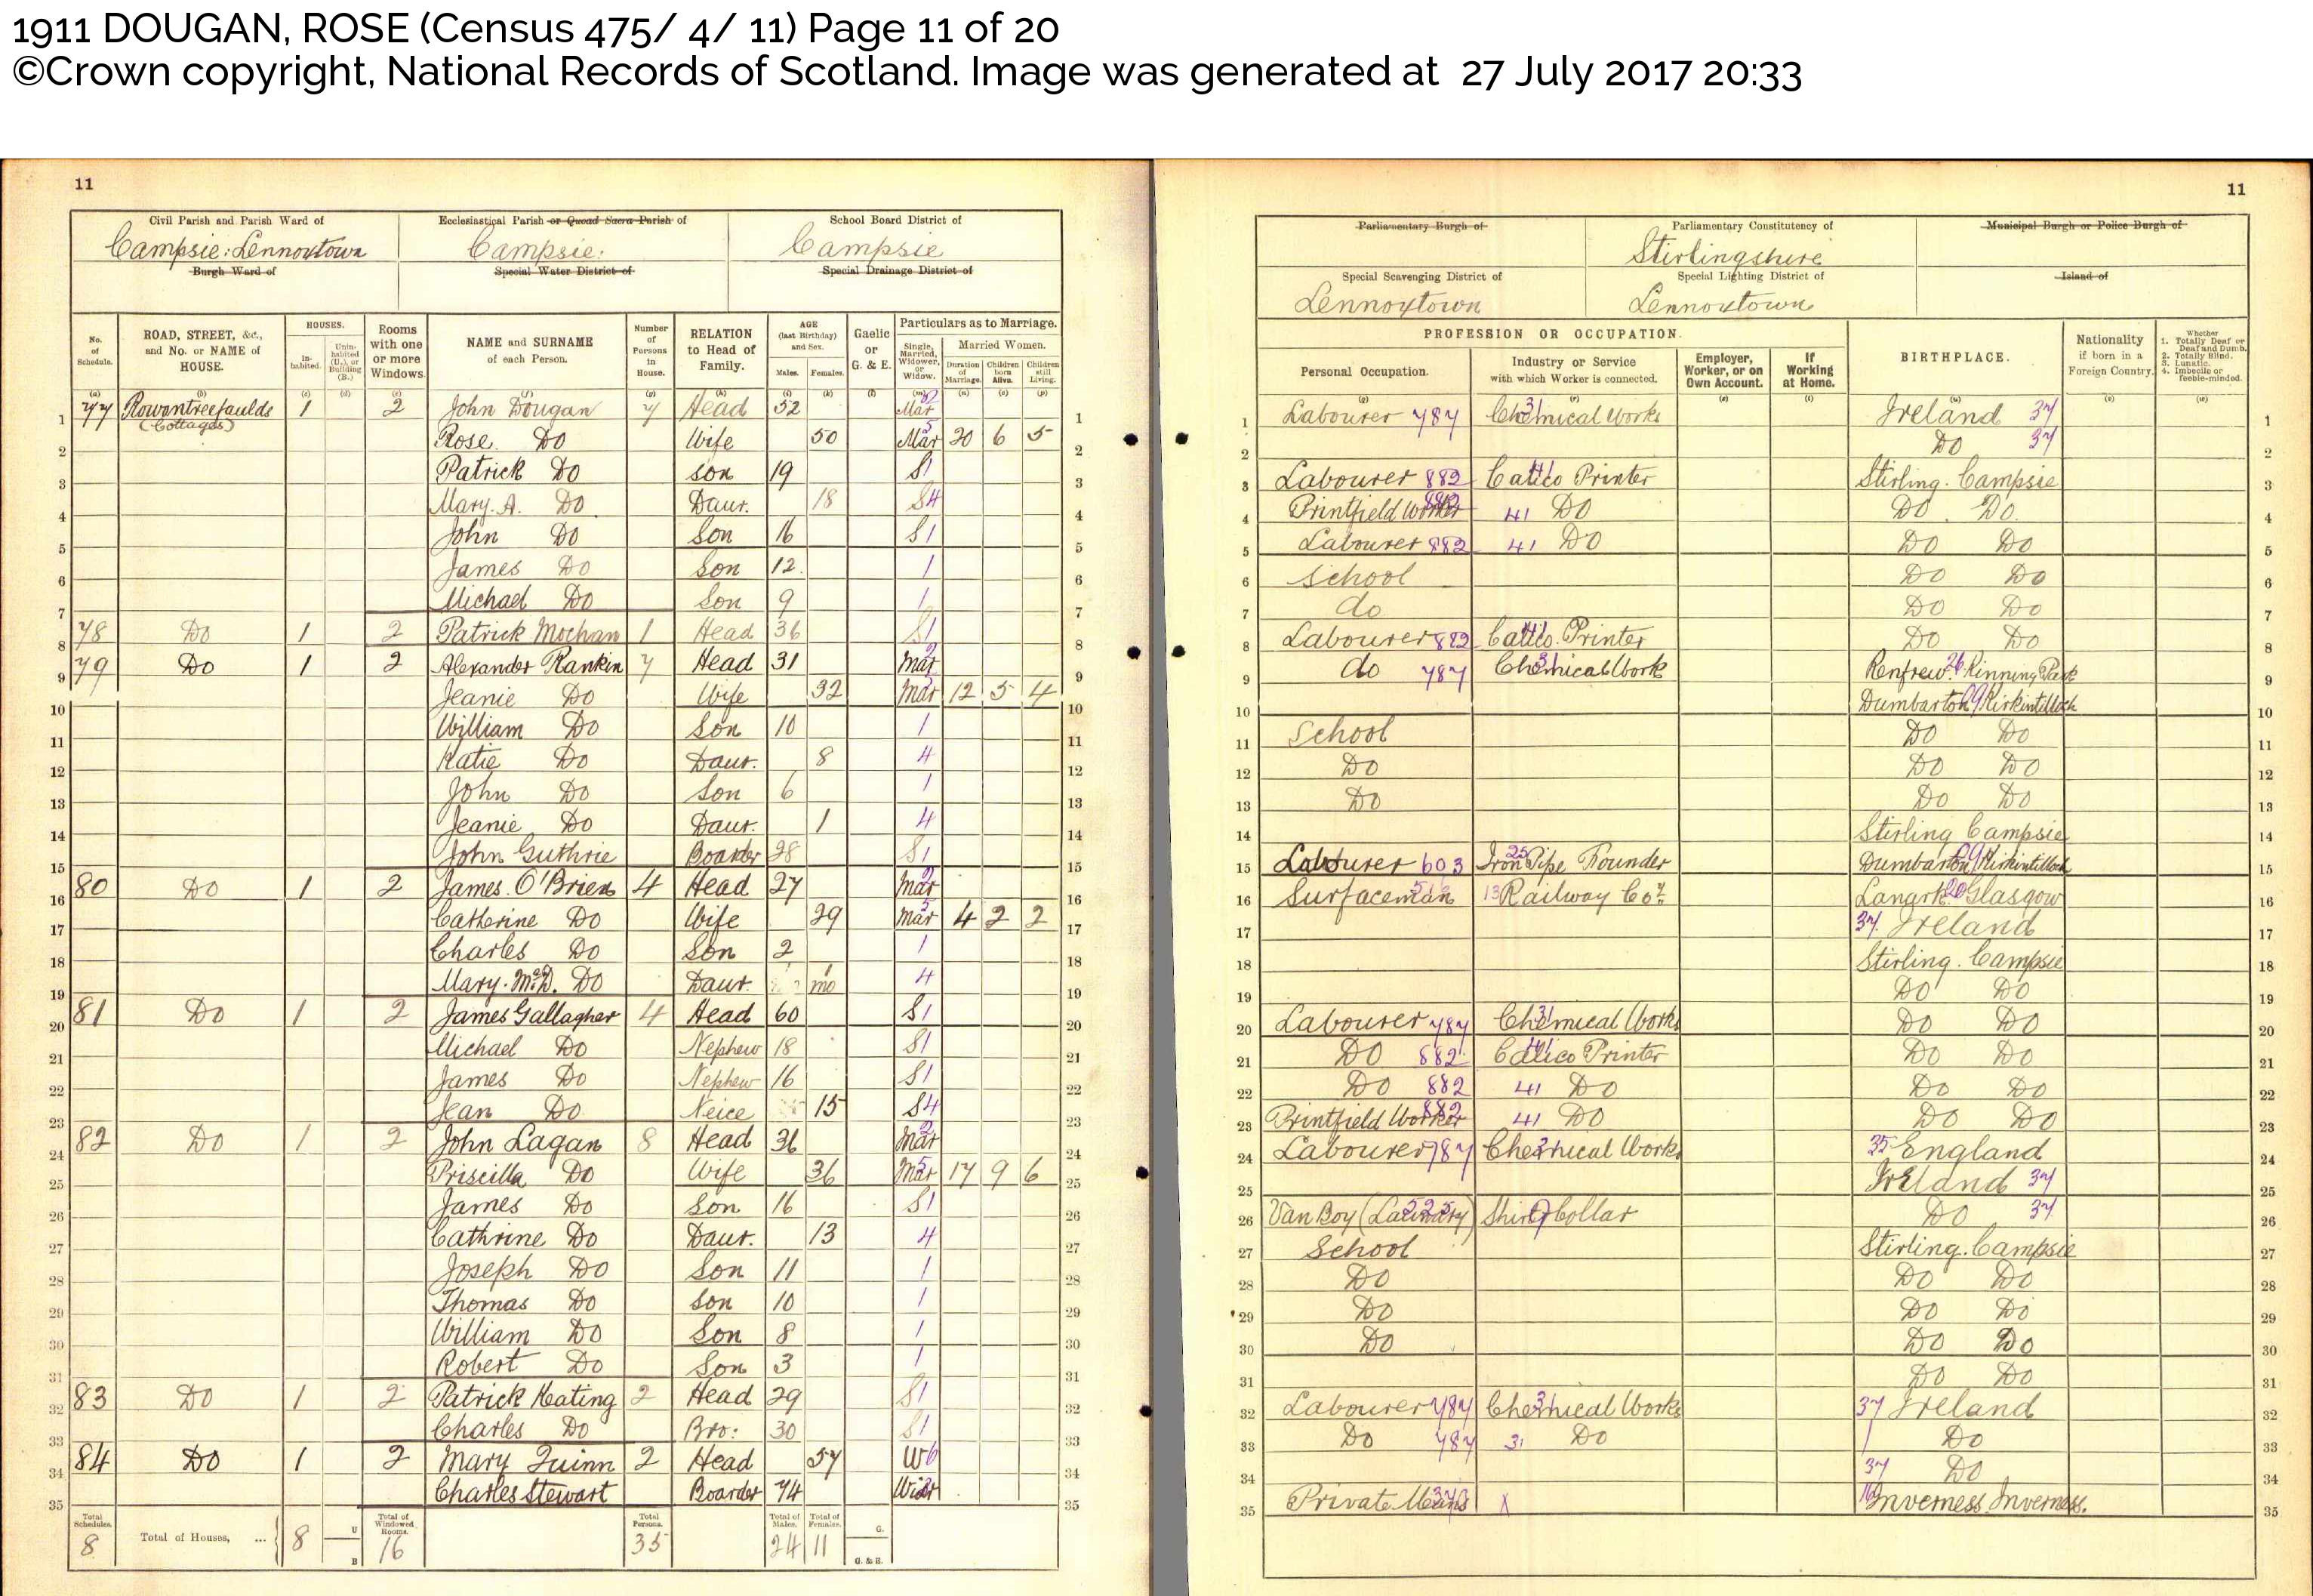 1911 DOUGAN, ROSE (Census 475/ 4/ 11) Page 11 of 20
©Crown copyright, National Records of Scotland. Image was generated at 27 July 2017 20:33
11
Civil Parish and Parish Ward of Ecclesiastical Parish or Quoad Sacra Parish of School Board District of
Campsie: Lennoxtown Campsie: Campsie
Burgh Ward of Special Water District of Special Drainage District of
No. of Schedule. ROAD, STREET, &c., and No. or NAME of HOUSE. HOUSES. Inhabited. Uninhabited (U.), or Building (B.) Rooms with one or more Windows. NAME and SURNAME of each Person. Number of Persons in House. RELATION to Head of Family. AGE (last Birthday) and Sex. Males. Females. Gaelic or G. & E. Particulars as to Marriage. Single, Married, Widower, or Widow. Married Women. Duration of Marriage. Children born Alive. Children still Living.
1 77 Rowantreefaulds (Cottages) 1 2 John Dougan 7 Head 52 Mar 1
2 Rose Do Wife 50 Mar 5 30 6 5 2
3 Patrick Do Son 19 S 1 3
4 Mary. A. Do Daur. 18 S 4 4
5 John Do Son 16 S 1 5
6 James Do Son 12 1 6
7 Michael Do Son 9 1 7
8 78 Do 1 2 Patrick Mochan 1 Head 36 S 1 8
9 79 Do 1 2 Alexander Rankin 7 Head 31 Mar 2 9
10 Jeanie Do Wife 32 Mar 5 12 5 4 10
11 William Do Son 10 1 11
12 Katie Do Daur. 8 4 12
13 John Do Son 6 1 13
14 Jeanie Do Daur. 1 4 14
15 John Guthrie Boarder 28 S 1 15
16 80 Do 1 2 James O'Brien 4 Head 27 Mar 2 16
17 Catherine Do Wife 29 Mar 5 4 2 2 17
18 Charles Do Son 2 1 18
19 Mary. McD. Do Daur. 1 mo 4 19
20 81 Do 1 2 James Gallagher 4 Head 60 S 1 20
21 Michael Do Nephew 18 S 1 21
22 James Do Nephew 16 S 1 22
23 Jean Do Neice 15 S 4 23
24 82 Do 1 2 John Lagan 8 Head 36 Mar 2 24
25 Priscilla Do Wife 36 Mar 5 17 9 6 25
26 James Do Son 16 S 1 26
27 Cathrine Do Daur. 13 4 27
28 Joseph Do Son 11 1 28
29 Thomas Do Son 10 1 29
30 William Do Son 8 1 30
31 Robert Do Son 3 1 31
32 83 Do 1 2 Patrick Keating 2 Head 29 S 1 32
33 Charles Do Bro: 30 S 1 33
34 84 Do 1 2 Mary Quinn 2 Head 57 W 6 34
35 Charles Stewart Boarder 74 35
Total Schedules. 8 Total of Houses, ... 8 U B Total of Windowed Rooms. 16 Total Persons. 35 Total of Males. 24 Total of Females. 11 G. G. & E.
11
Parliamentary Burgh of Parliamentary Constituency of Municipal Burgh or Police Burgh of
Stirlingshire
Special Scavenging District of Special Lighting District of Island of
Lennoxtown Lennoxtown
PROFESSION OR OCCUPATION. Personal Occupation. Industry or Service with which Worker is connected. Employer, Worker, or on Own Account. If Working at Home. BIRTHPLACE. Nationality if born in a Foreign Country. Whether 1. Totally Deaf or Deaf and Dumb. 2. Totally Blind. 3. Lunatic. 4. Imbecile or feeble-minded.
1 Labourer 787 Chemical Works 31 Ireland 37 1
2 Do 37 2
3 Labourer 882 Calico Printer 41 Stirling. Campsie 3
4 Printfield Worker 882 41 Do Do Do 4
5 Labourer 882 41 Do Do Do 5
6 School Do Do 6
7 do Do Do 7
8 Labourer 882 Calico Printer 41 Do Do 8
9 do 787 Chemical Work 31 Renfrew 26 Kinning Park 9
10 Dumbarton Kirkintilloch 10
11 School Do Do 11
12 Do Do Do 12
13 Do Do Do 13
14 Stirling Campsie 14
15 Labourer 603 Iron Pipe Founder 25 Dumbarton Kirkintilloch 15
16 Surfaceman 13 Railway Coy Lanark 20 Glasgow 16
17 37 Ireland 17
18 Stirling. Campsie 18
19 Do Do 19
20 Labourer 787 Chemical Works 31 Do Do 20
21 Do 882 Calico Printer 41 Do Do 21
22 Do 882 41 Do Do Do 22
23 Printfield Worker 882 41 Do Do Do 23
24 Labourer 787 Chemical Works 31 35 England 24
25 Ireland 37 25
26 Van Boy (Laundry) Shirt Collar Do 37 26
27 School Stirling. Campsie 27
28 Do Do Do 28
29 Do Do Do 29
30 Do Do Do 30
31 Do Do 31
32 Labourer 787 Chemical Works 31 37 Ireland 32
33 Do 787 31 Do Do 33
34 37 Do 34
35 Private Means X Inverness Inverness. 35